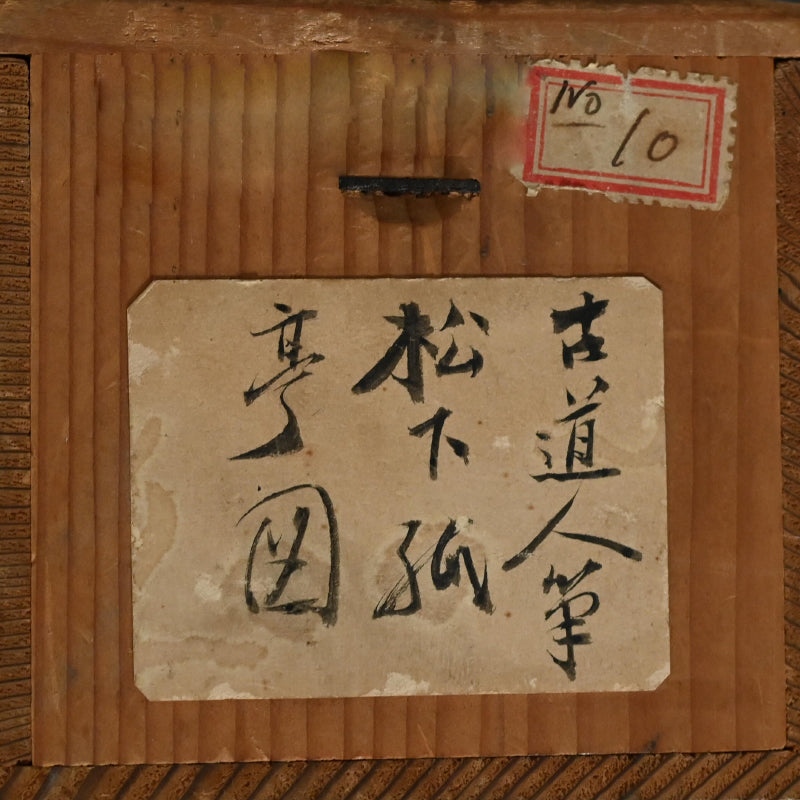 No 10
古道人筆
松下孤
亭図